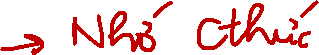 → Nhớ Cthức